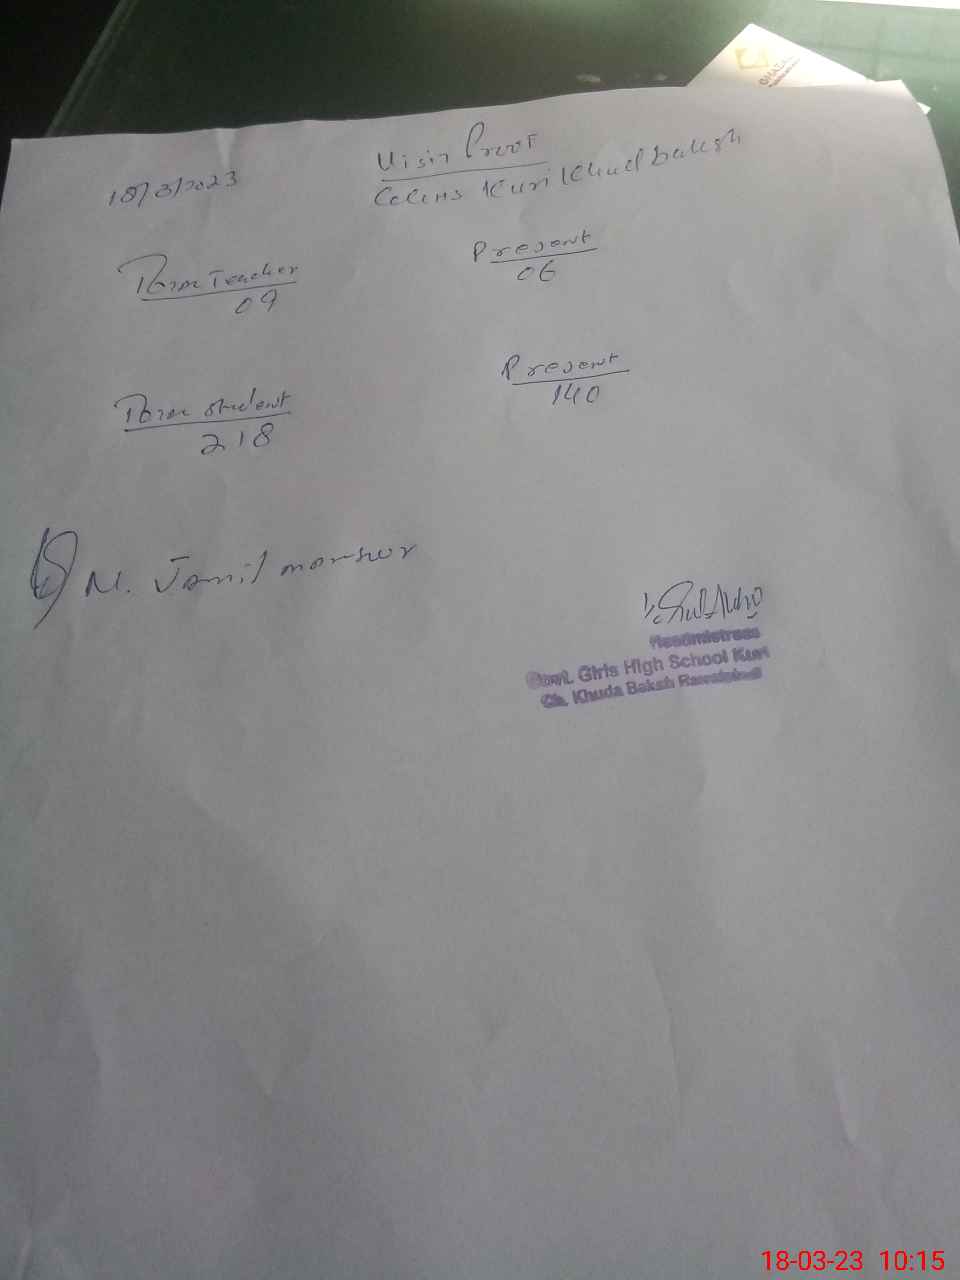 Visit Proof
18/3/2023
GGHS Kuri Khud Baksh
Total Teacher
09
Present
06
Total Student
218
Present
140
M. Jamil mansoor
Headmistress
Govt. Girls High School Kuri
Ch. Khuda Baksh Rawalpindi
18-03-23 10:15